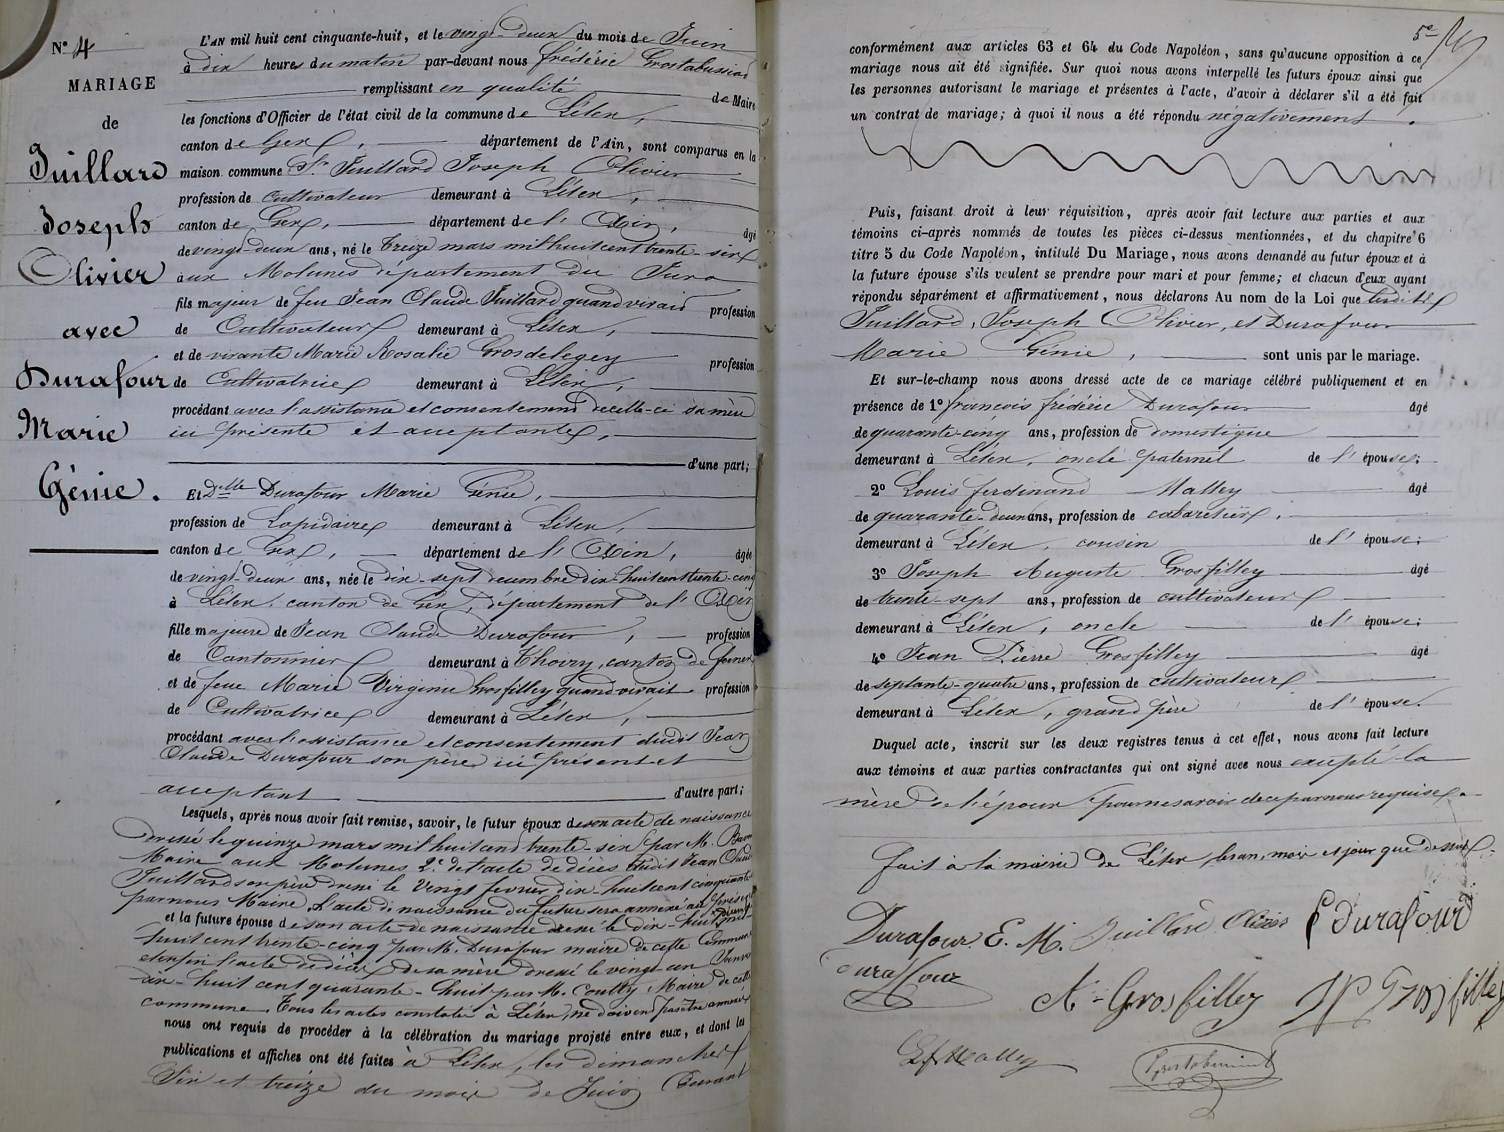 N° 4
MARIAGE
de
Juillard
Joseph
Olivier
avec
Durafour
Marie
Génie.
L'AN mil huit cent cinquante-huit, et le vingt-deux du mois de Juin
à dix heures du matin par-devant nous frédéric Grostabussiat
remplissant en qualité de Maire
les fonctions d'Officier de l'état civil de la commune de Lélex,
canton de Gex, département de l'Ain, sont comparus en la
maison commune Sr. Juillard Joseph Olivier
profession de Cultivateur demeurant à Lélex,
canton de Gex, département de l'Ain, âgé
de vingt-deux ans, né le treize mars mil huit cent trente-six
aux Molunes département du Jura
fils majeur de feu Jean Claude Juillard quand vivait profession
de Cultivateur demeurant à Lélex,
et de vivante Marie Rosalie Grosdelegey profession
de Cultivatrice demeurant à Lélex,
procédant avec l'assistance et consentement de celle-ci sa mère
ici présente et acceptante,
d'une part;
Et Delle Durafour Marie Génie,
profession de Lapidaire demeurant à Lélex,
canton de Gex, département de l'Ain, âgée
de vingt-deux ans, née le dix-sept decembre dix-huit cent trente-cinq
à Lélex, canton de Gex, département de l'Ain
fille majeure de Jean Claude Durafour, profession
de Cantonnier demeurant à Thoiry, canton de ferney
et de feue Marie Virginie Grosfilley quand vivait profession
de Cultivatrice demeurant à Lélex,
procédant avec l'assistance et consentement dudit Jean
Claude Durafour son père ici présent et
acceptant d'autre part;
Lesquels, après nous avoir fait remise, savoir, le futur époux de son acte de naissance
dressé le quinze mars mil huit cent trente-six par M.
Maire aux Molunes 2° de l'acte de décès dudit Jean Claude
Juillard son père dressé le vingt fevrier dix-huit cent cinquante
par nous Maire, l'acte de naissance du futur sera annexé au présent
et la future épouse de son acte de naissance dressé le dix-huit
huit cent trente-cinq par M. Durafour maire de cette Commune
et enfin l'acte de décès de sa mère dressé le vingt-un Janvier
dix-huit cent quarante-huit par M. Coutty, Maire de cette
commune. Tous les actes constatés à Lélex, ne doivent pas être annexés
nous ont requis de procéder à la célébration du mariage projeté entre eux, et dont les
publications et affiches ont été faites à Lélex, les dimanches
Six et treize du mois de Juin Courant
5e
conformément aux articles 63 et 64 du Code Napoléon, sans qu'aucune opposition à ce
mariage nous ait été signifiée. Sur quoi nous avons interpellé les futurs époux ainsi que
les personnes autorisant le mariage et présentes à l'acte, d'avoir à déclarer s'il a été fait
un contrat de mariage; à quoi il nous a été répondu négativement.
Puis, faisant droit à leur réquisition, après avoir fait lecture aux parties et aux
témoins ci-après nommés de toutes les pièces ci-dessus mentionnées, et du chapitre 6
titre 5 du Code Napoléon, intitulé Du Mariage, nous avons demandé au futur époux et à
la future épouse s'ils veulent se prendre pour mari et pour femme; et chacun d'eux ayant
répondu séparément et affirmativement, nous déclarons Au nom de la Loi que lesdits
Juillard, Joseph Olivier, et Durafour
Marie Génie, sont unis par le mariage.
Et sur-le-champ nous avons dressé acte de ce mariage célébré publiquement et en
présence de 1° francois frédéric Durafour âgé
de quarante-cinq ans, profession de domestique
demeurant à Lélex, oncle paternel de l'épouse;
2° Louis ferdinand Malley âgé
de quarante-deux ans, profession de cabaretier,
demeurant à Lélex, cousin de l'épouse;
3° Joseph Auguste Grosfilley âgé
de trente-sept ans, profession de cultivateur
demeurant à Lélex, oncle de l'épouse;
4° Jean Pierre Grosfilley âgé
de septante-quatre ans, profession de cultivateur
demeurant à Lélex, grand père de l'épouse.
Duquel acte, inscrit sur les deux registres tenus à cet effet, nous avons fait lecture
aux témoins et aux parties contractantes qui ont signé avec nous excepté la
mère de l'époux pour ne savoir de ce par nous requise.
fait à la mairie de Lélex, les an, mois et jour que dessus.
Durafour. E. M. Juillard F Durafour
Durafour
A Grosfilley JP Grosfilley
L f Malley Grostabussiat